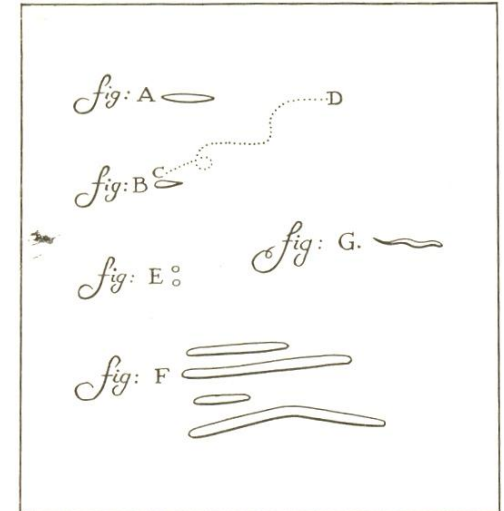 fig: A
D
fig: B
C
fig: G.
fig: E
fig: F